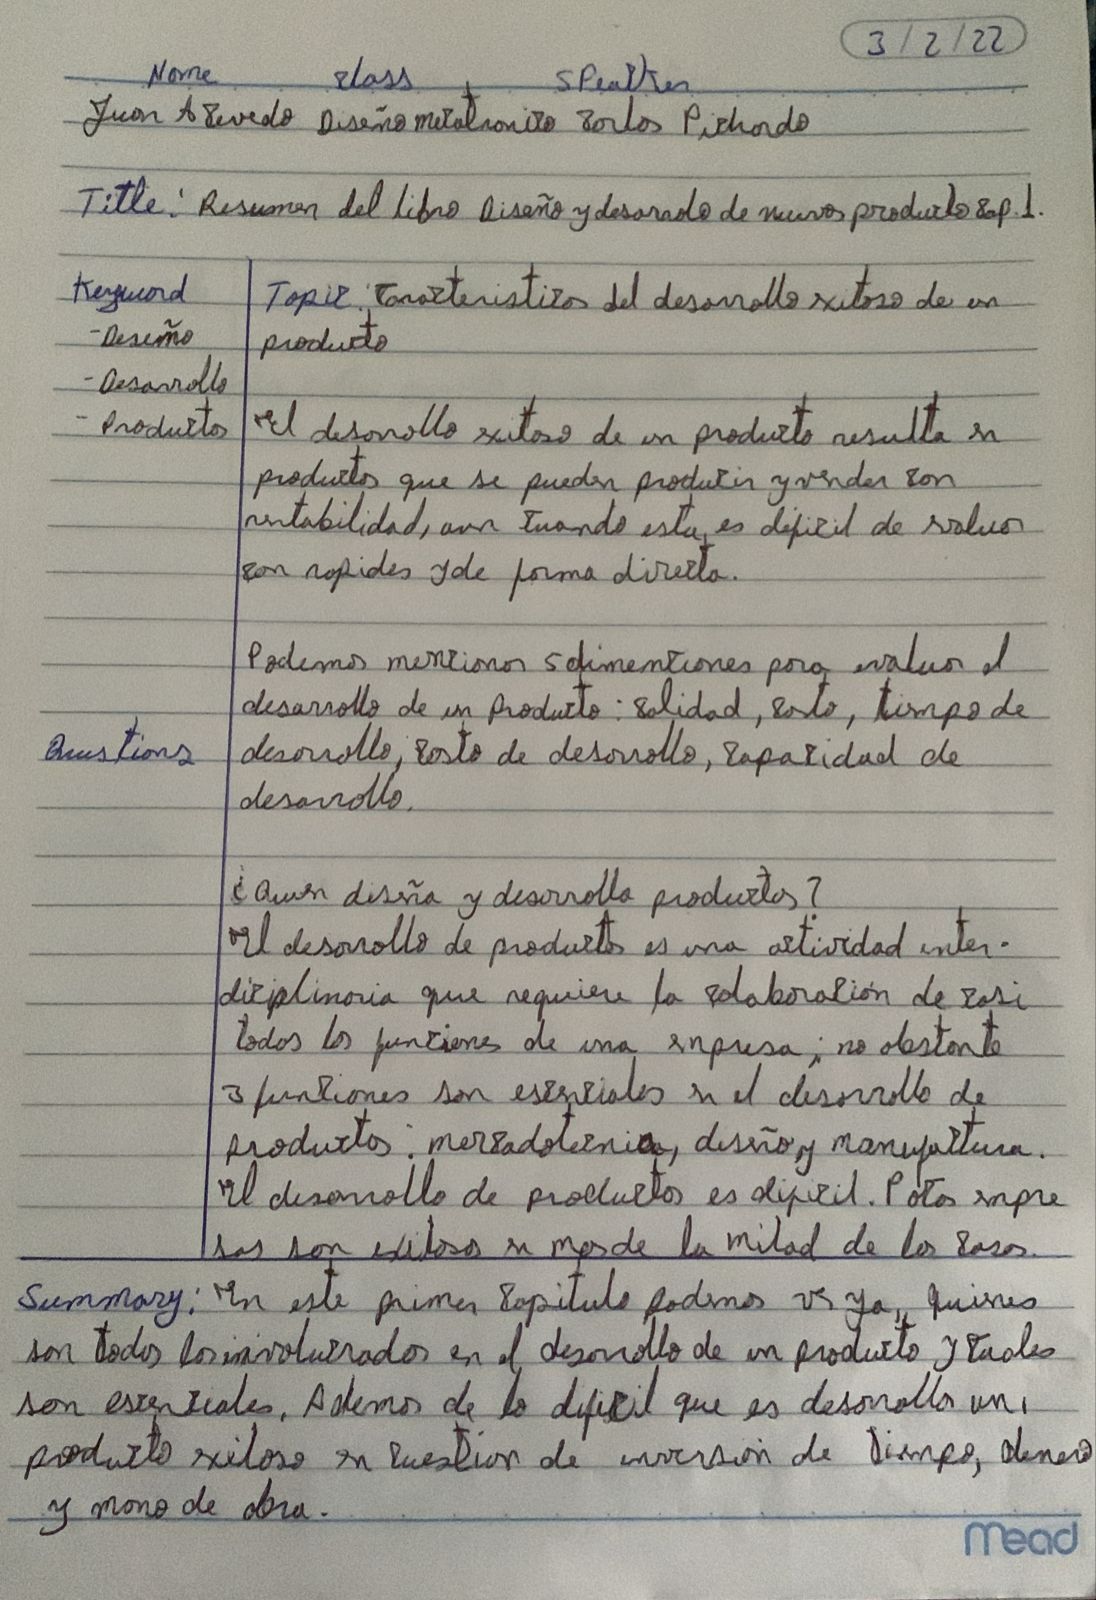 3/2/22
Name Class Speaker
Juan Acevedo Diseño mecatronico Carlos Pichardo
Title: Resumen del libro Diseño y desarrollo de nuevos producto Cap. 1.
Keyword
- Diseño
- Desarrollo
- Productos
Topic: Caracteristicas del desarrollo exitoso de un
producto
El desarrollo exitoso de un producto resulta en
productos que se pueden producir y vender con
rentabilidad, aun cuando esta es dificil de evaluar
con rapides y de forma directa.
Podemos mencionar 5 dimenciones para evaluar el
desarrollo de un Producto: calidad, costo, tiempo de
Questions
desarrollo, costo de desarrollo, capacidad de
desarrollo.
¿Quien diseña y desarrolla productos?
El desarrollo de productos es una actividad inter-
diciplinaria que requiere la colaboración de casi
todas las funciones de una empresa; no obstante
3 funciones son esenciales en el desarrollo de
productos: mercadotecnia, diseño, y manufactura.
El desarrollo de productos es dificil. Pocas empre
sas son exitosas en mas de la mitad de los casos.
Summary: En este primer capitulo podemos ver ya, quienes
son todos los involucrados en el desarrollo de un producto y cuales
son esenciales. Ademas de lo dificil que es desarrollar un
producto exitoso en cuestion de inversión de tiempo, dinero
y mano de obra.
Mead